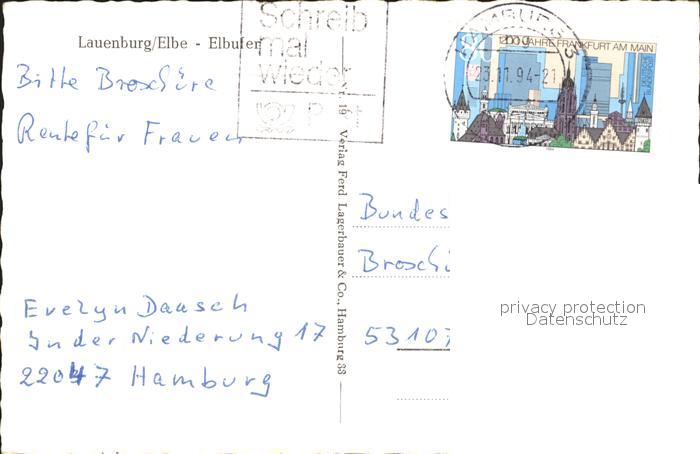 Lauenburg/Elbe - Elbufer
Schreib
mal
wieder
Post
1200 JAHRE FRANKFURT AM MAIN
23.11.94-21
Bitte Broschüre
Rente für Frauen
Nr. 19 Verlag Ferd. Lagerbauer & Co., Hamburg 33
Bundes
Broschü
53107
Evelyn Daasch
In der Niederung 17
22047 Hamburg
privacy protection
Datenschutz